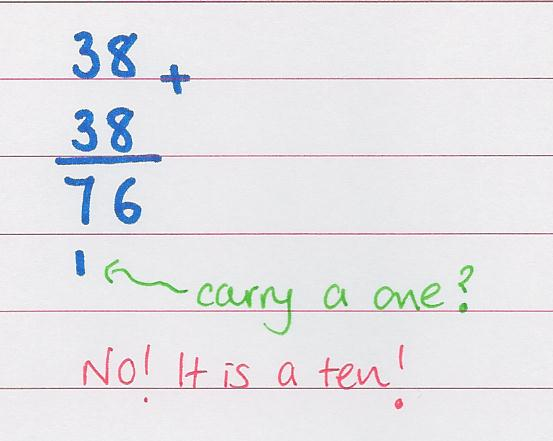 38 +
38
76
1 carry a one?
No! It is a ten!